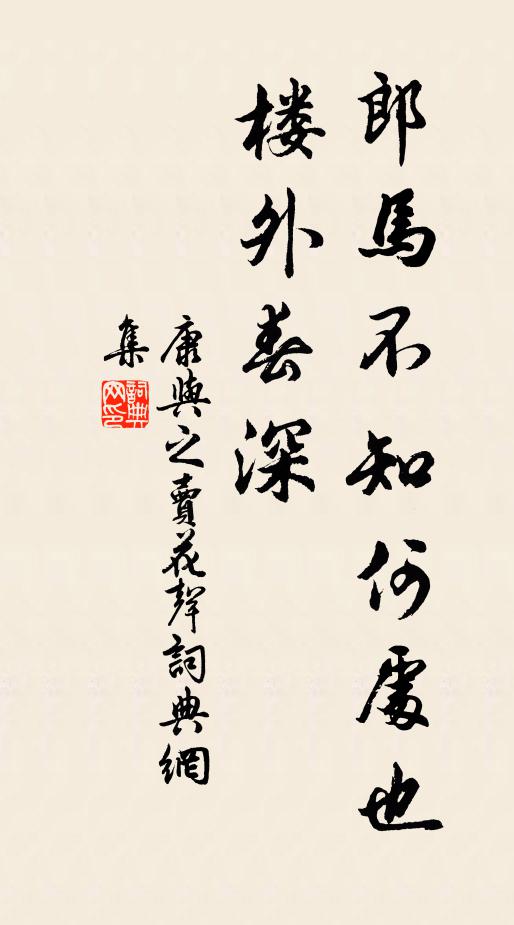 郎馬不知何處也
楼外春深
康與之賣花聲詞典網
集
詞典網印